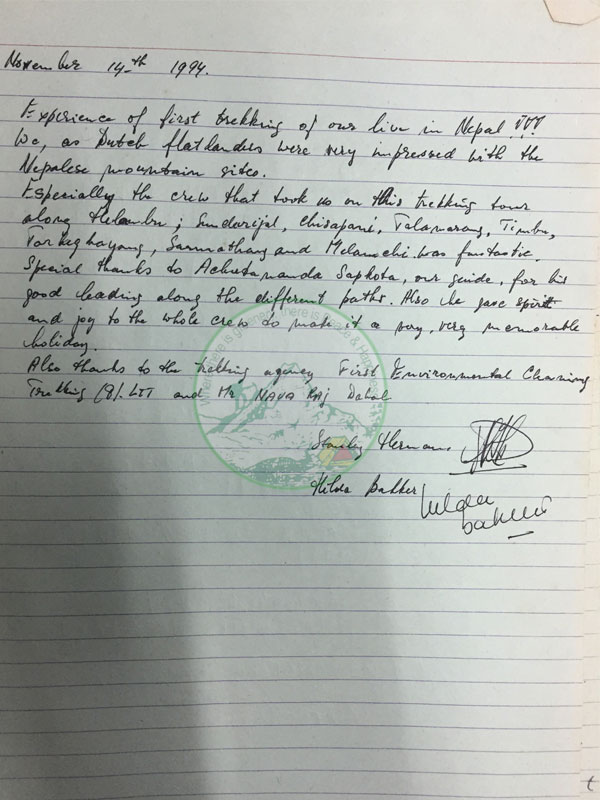 November 14th 1994.
Experience of first trekking of our live in Nepal !!!
We, as Dutch flatlanders were very impressed with the
Nepalese mountain sites.
Especially the crew that took us on this trekking tour
along Helambu; Sundarijal, Chisapani, Talamarang, Timbu,
Tarkeghayang, Sarmathang and Melamchi was fantastic.
Special thanks to Achutananda Sapkota, our guide, for his
good leading along the different paths. Also he gave spirit
and joy to the whole crew to make it a very, very memorable
holiday.
Also thanks to the trekking agency First Environmental Charming
Trekking (P). LTT and Mr NAVA RAJ Dahal
Stanley Hermans
Hilda Bakker
hilda
bakker
there is
t